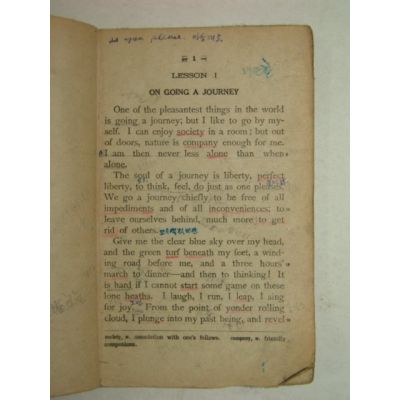 as you please.
— 1 —
LESSON 1
ON GOING A JOURNEY
One of the pleasantest things in the world
is going a journey; but I like to go by my-
self. I can enjoy society in a room; but out
of doors, nature is company enough for me.
I am then never less alone than when
alone.
The soul of a journey is liberty, perfect
liberty, to think, feel, do just as one pleases.
We go a journey chiefly to be free of all
impediments and of all inconveniences; to
leave ourselves behind, much more to get
rid of others.
Give me the clear blue sky over my head,
and the green turf beneath my feet, a wind-
ing road before me, and a three hours'
march to dinner—and then to thinking! It
is hard if I cannot start some game on these
lone heaths. I laugh, I run, I leap, I sing
for joy. From the point of yonder rolling
cloud, I plunge into my past being, and revel
society, n. association with one's fellows. company, n. friendly
companions.